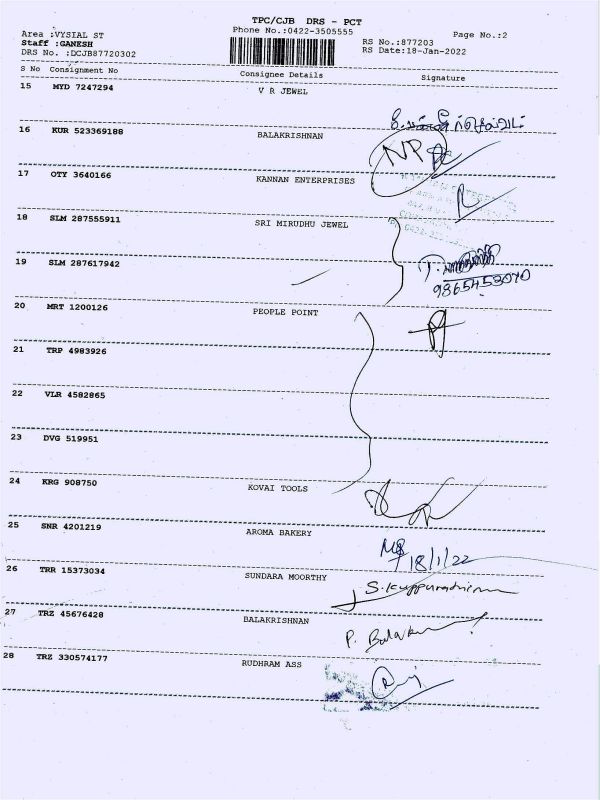 TPC/CJB DRS - PCT
Area :VYSIAL ST
Phone No.:0422-3505555
Page No.:2
Staff :GANESH
RS No.:877203
DRS No. :DCJB87720302
RS Date:18-Jan-2022
S No Consignment No Consignee Details Signature
15 MYD 7247294 V R JEWEL
16 KUR 523369188 BALAKRISHNAN
NP
17 OTY 3640166 KANNAN ENTERPRISES
18 SLM 287555911 SRI MIRUDHU JEWEL
19 SLM 287617942
9865453070
20 MRT 1200126 PEOPLE POINT
21 TRP 4983926
22 VLR 4582865
23 DVG 519951
24 KRG 908750 KOVAI TOOLS
25 SNR 4201219 AROMA BAKERY
18/1/22
26 TRR 15373034 SUNDARA MOORTHY
27 TRZ 45676428 BALAKRISHNAN
28 TRZ 330574177 RUDHRAM ASS